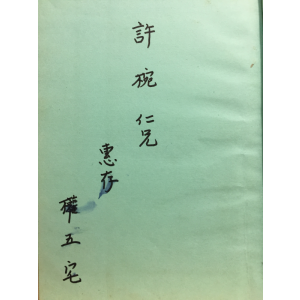 許椀仁兄
惠存
權五宅